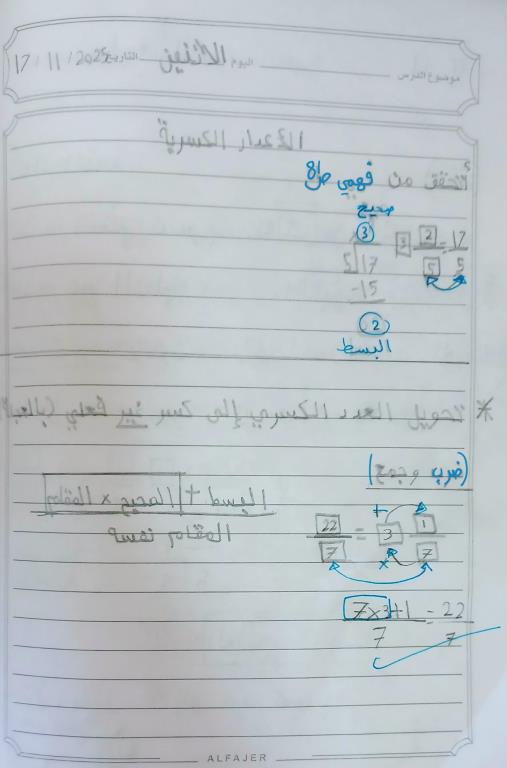 موضوع الدرس اليوم الاثنين التاريخ 17 / 11 / 2025
الأعداد الكسرية
أتحقق من فهمي ص/8
صحيح
3
3 2/5 = 17/5
5 17
-15
2
البسط
* تحويل العدد الكسري إلى كسر غير فعلي (
(ضرب وجمع)
البسط + الصحيح × المقام
المقام نفسه
22/7 = 3 1/7
+
×
7×3+1/7 = 22/7
ALFAJER